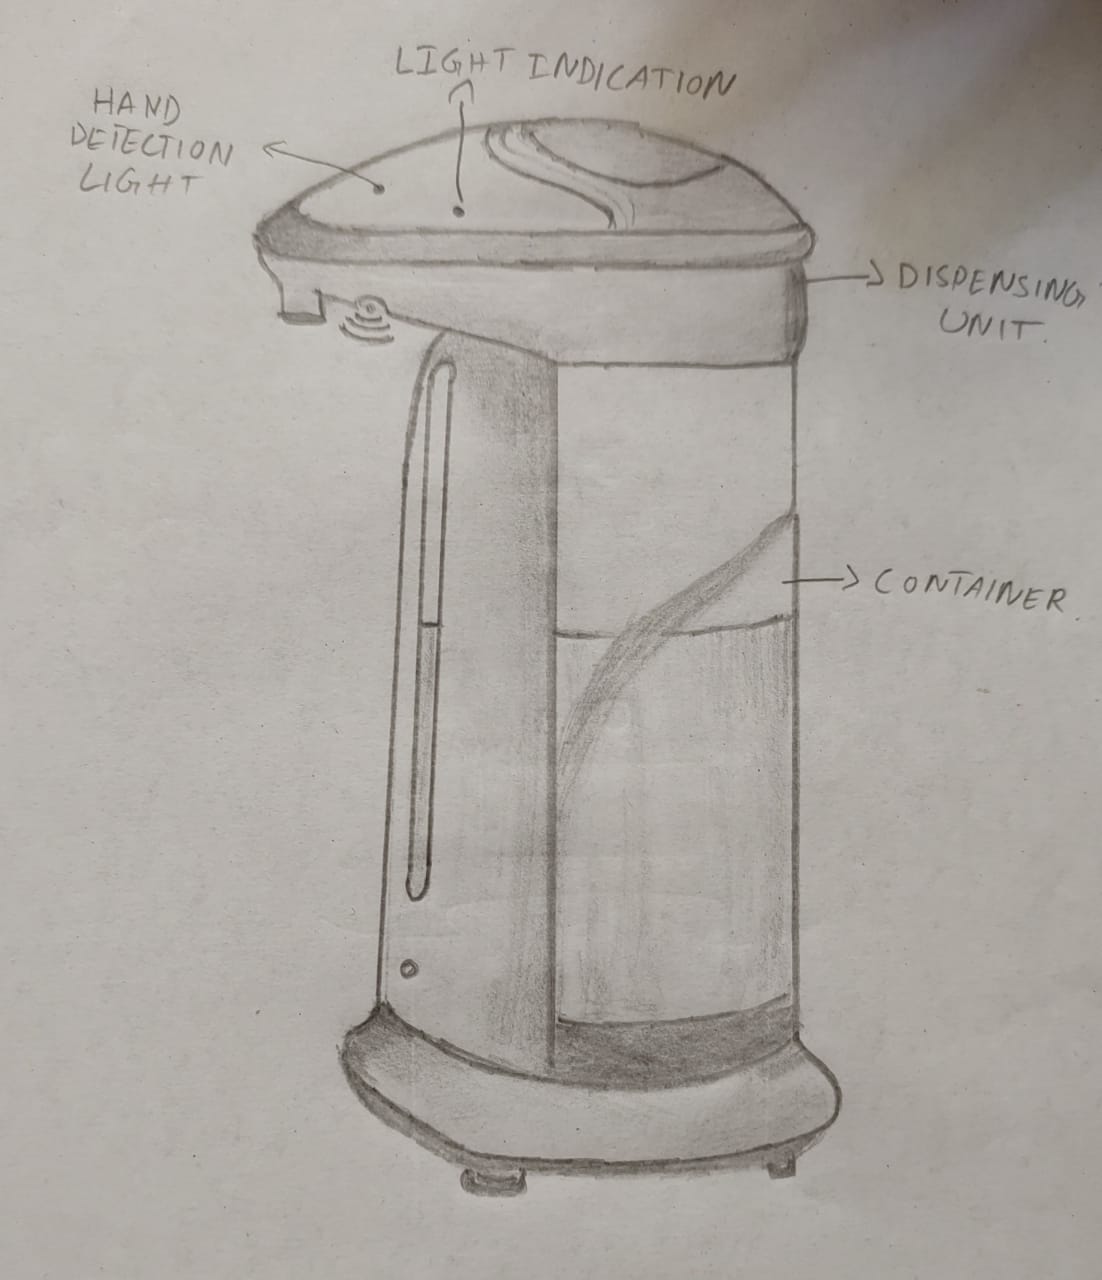 LIGHT INDICATION
HAND
DETECTION
LIGHT
DISPENSING
UNIT.
CONTAINER